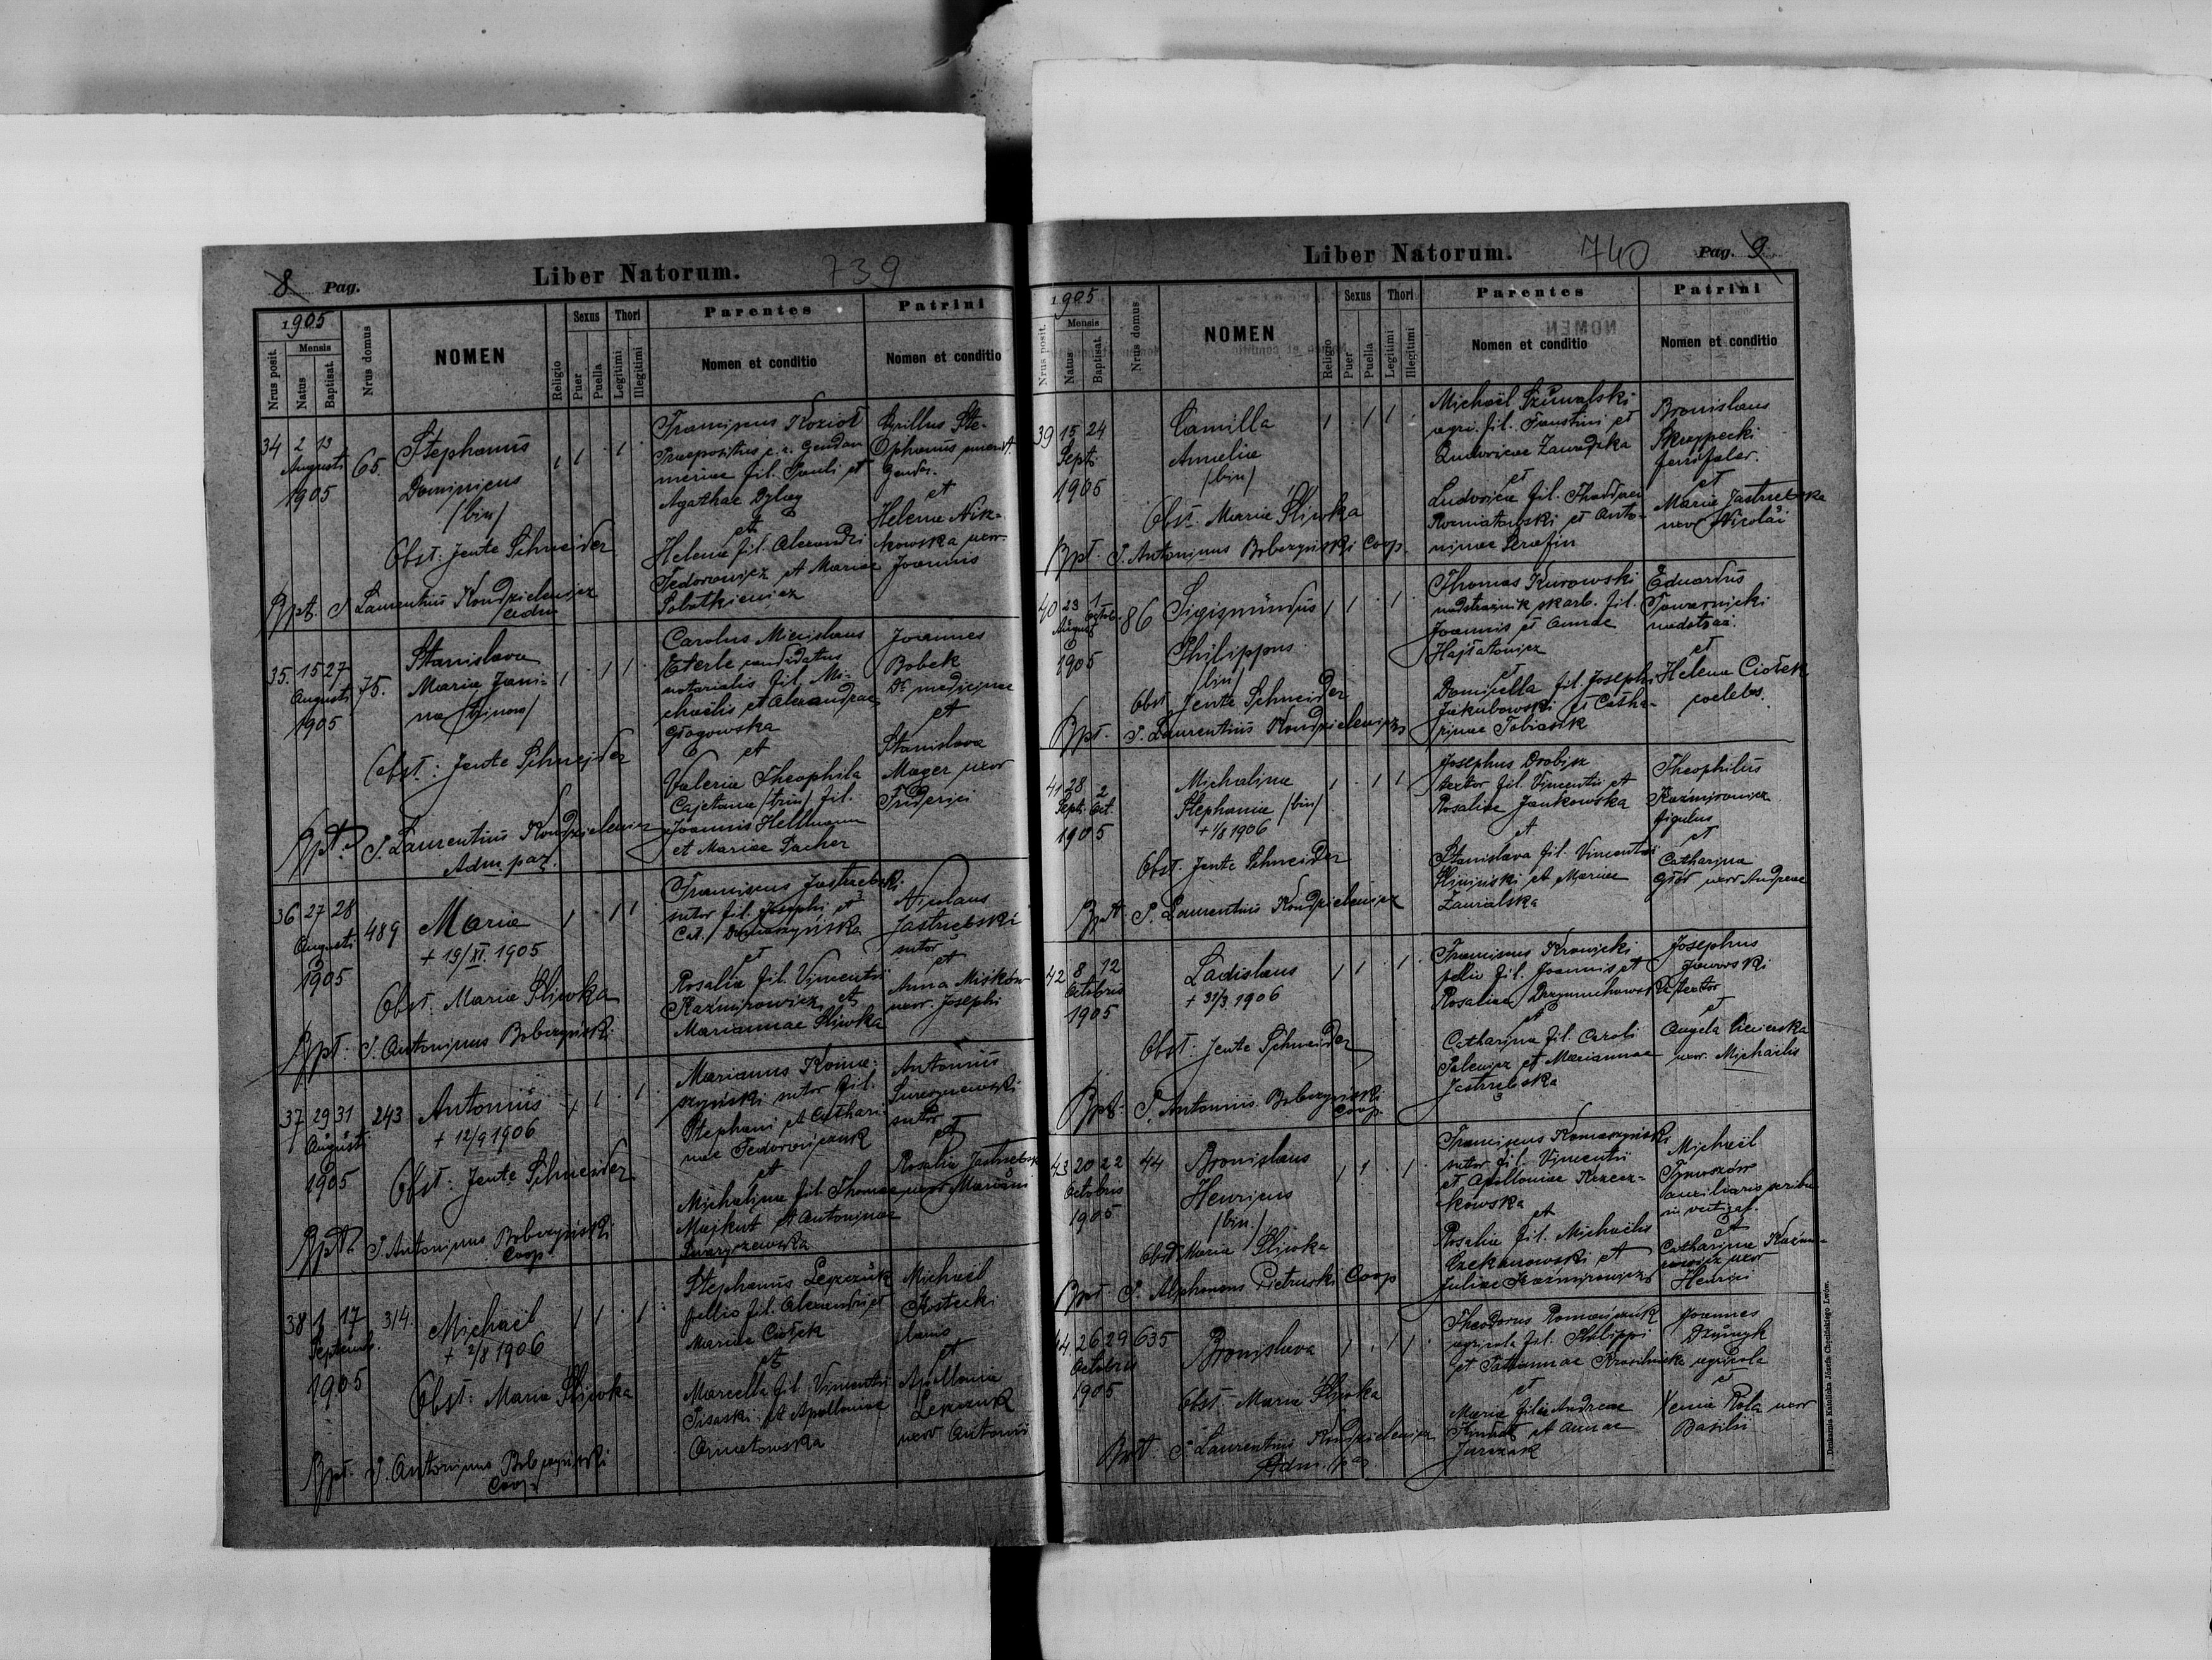 8 Pag.
Liber Natorum.
739
1905
Nrus posit.
Mensis
Natus
Baptisat.
Nrus domus
NOMEN
Religio
Sexus
Puer
Puella
Thori
Legitimi
Illegitimi
Parentes
Nomen et conditio
Patrini
Nomen et conditio
34 2 13
Augusti
1905
65.
Stephanus
Dominicus
/bin/
Obst. Jente Schneider
Bpt. P. Laurentius Kondzielewicz
adm
Franciscus Kozioł
Praepositus c. r. Gendar
meriae fil. Pauli et
Agathae
et
Helena fil. Alexandri
Fedorowicz et Mariae
Sobotkiewicz
Cyrillus Ste-
et
Helena Nik-
kowska uxor
Joannis
35. 15 27
Augusti
1905
75.
Stanislava
Maria Jani-
na /trinom/
Obst.: Jente Schneider
Bpt. P. Laurentius Kondzielewicz
Adm. par.
Carolus Miecislaus
Eterle candidatus
notarialis fil. Mi-
chaëlis et Alexandrae
Głogowska
et
Valeria Theophila
Cajetana /trin/ fil.
Joannis Hellmann
et Mariae Pacher
Joannes
Bobek
Dr medicinae
et
Stanislava
Mager uxor
Friderici
36 27 28
Augusti
1905
489
Maria
+ 19/XI. 1905
Obst. Maria Śliwka
Bpt. P. Antoninus Bobczyński
Franciscus Jastrzebski
sutor fil. Josephi et
Cat.
et
Rosalia fil. Vincentii
Kaźmirowicz et
Mariannae Śliwka
Jastrzebski
sutor
et
Anna Miśków
uxor Josephi
37 29 31
Augusti
1905
243
Antonius
+ 12/9 1906
Obst. Jente Schneider
Bpt. P. Antoninus Bobczyński
Coop.
Marianus Koma-
rzyński sutor fil.
Stephani et Cathari-
nae Fedorowiczuk
et
Michalina fil. Thomae
Majkut et Antoninae
Antonius
sutor
et
Rosalia Jastrzebska
uxor Mariani
38 1 17
Septemb.
1905
314.
Michaël
+ 2/8 1906
Obst. Maria Śliwka
Bpt. P. Antoninus Bobczyński
Coop.
Stephanus Lepczuk
pellio fil. Alexandri et
Mariae Ciołek
et
Marcella fil. Vincentii
Pisaski et Apolloniae
Michaël
Kostecki
et
Apollonia
Lepczuk
uxor Antonii
Liber Natorum.
740
Pag. 9
1905
Nrus posit.
Mensis
Natus
Baptisat.
Nrus domus
NOMEN
Religio
Sexus
Puer
Puella
Thori
Legitimi
Illegitimi
Parentes
Nomen et conditio
Patrini
Nomen et conditio
39 15 24
Sept.
1905
Camilla
Amelia
/bin/
Obst. Maria Śliwka
Bpt. P. Antoninus Bobczyński Coop.
Michaël Szuwalski
agri. fil. Faustini et
Ludovicae Zawadzka
et
Ludovica fil. Thaddaei
Romiatowski et Anto-
ninae Serafin
Bronislaus
Skrzypecki
et
Maria Jastrzebska
uxor Nicolai
40 23 1
August Octob.
1905
86
Sigismundus
Philippus
/bin/
Obst. Jente Schneider
Bpt. P. Laurentius Kondzielewicz
Thomas Kurowski
nadstrażnik skarb. fil.
Joannis et Annae
Hajłatowicz
et
Domicella fil. Josephi
Jakubowski et Catha-
rinae Tobiasik
Eduardus
Towarnicki
nadstraż.
et
Helena Ciołek
coelebs.
41 28 2
Sept. Oct.
1905
Michalina
Stephania /bin/
+ 1/8 1906
Obst. Jente Schneider
Bpt. P. Laurentius Kondzielewicz
Josephus Drobisz
textor fil. Vincentii et
Rosaliae Jankowska
et
Stanislava fil. Vincentii
et Mariae
Zawalska
Theophilus
Kaźmirowicz
figulus
et
Catharina
uxor Andreae
42 8 12
Octobris
1905
Ladislaus
+ 31/3 1906
Obst. Jente Schneider
Bpt. P. Antoninus Bobczyński
Coop.
Franciscus Kronicki
pellio fil. Joannis et
Rosaliae
et
Catharina fil. Caroli
Palewicz et Mariannae
Jastrzebska
Josephus
Jaworski
textor
et
Angela
uxor Michaëlis
43 20 22
Octobris
1905
44
Bronislaus
Henricus
/bin./
Obst. Maria Śliwka
Bpt. P. Alphonsus Pietruski Coop
Franciscus Komarzyński
sutor fil. Vincentii
et Apolloniae Krzecz-
kowska
et
Rosalia fil. Michaëlis
Czekanowski et
Juliae Kaźmirowicz
Michaël
Tymoszów
auxiliaris scriba
et
Catharina Kaźmi-
rowicz uxor
Henrici
44 26 29
Octobris
1905
635
Bronislava
Obst. Maria Śliwka
Bpt. P. Laurentius Kondzielewicz
Adm. par
Theodorus Romańczuk
agricola fil. Philippi
et Tatiannae Krasilnicka
et
Maria filia Andreae
et Annae
Jurczak
Joannes
agricola
et
Xenia Rola uxor
Basilii
Drukarnia Katolicka Józefa Chęcińskiego Lwów.